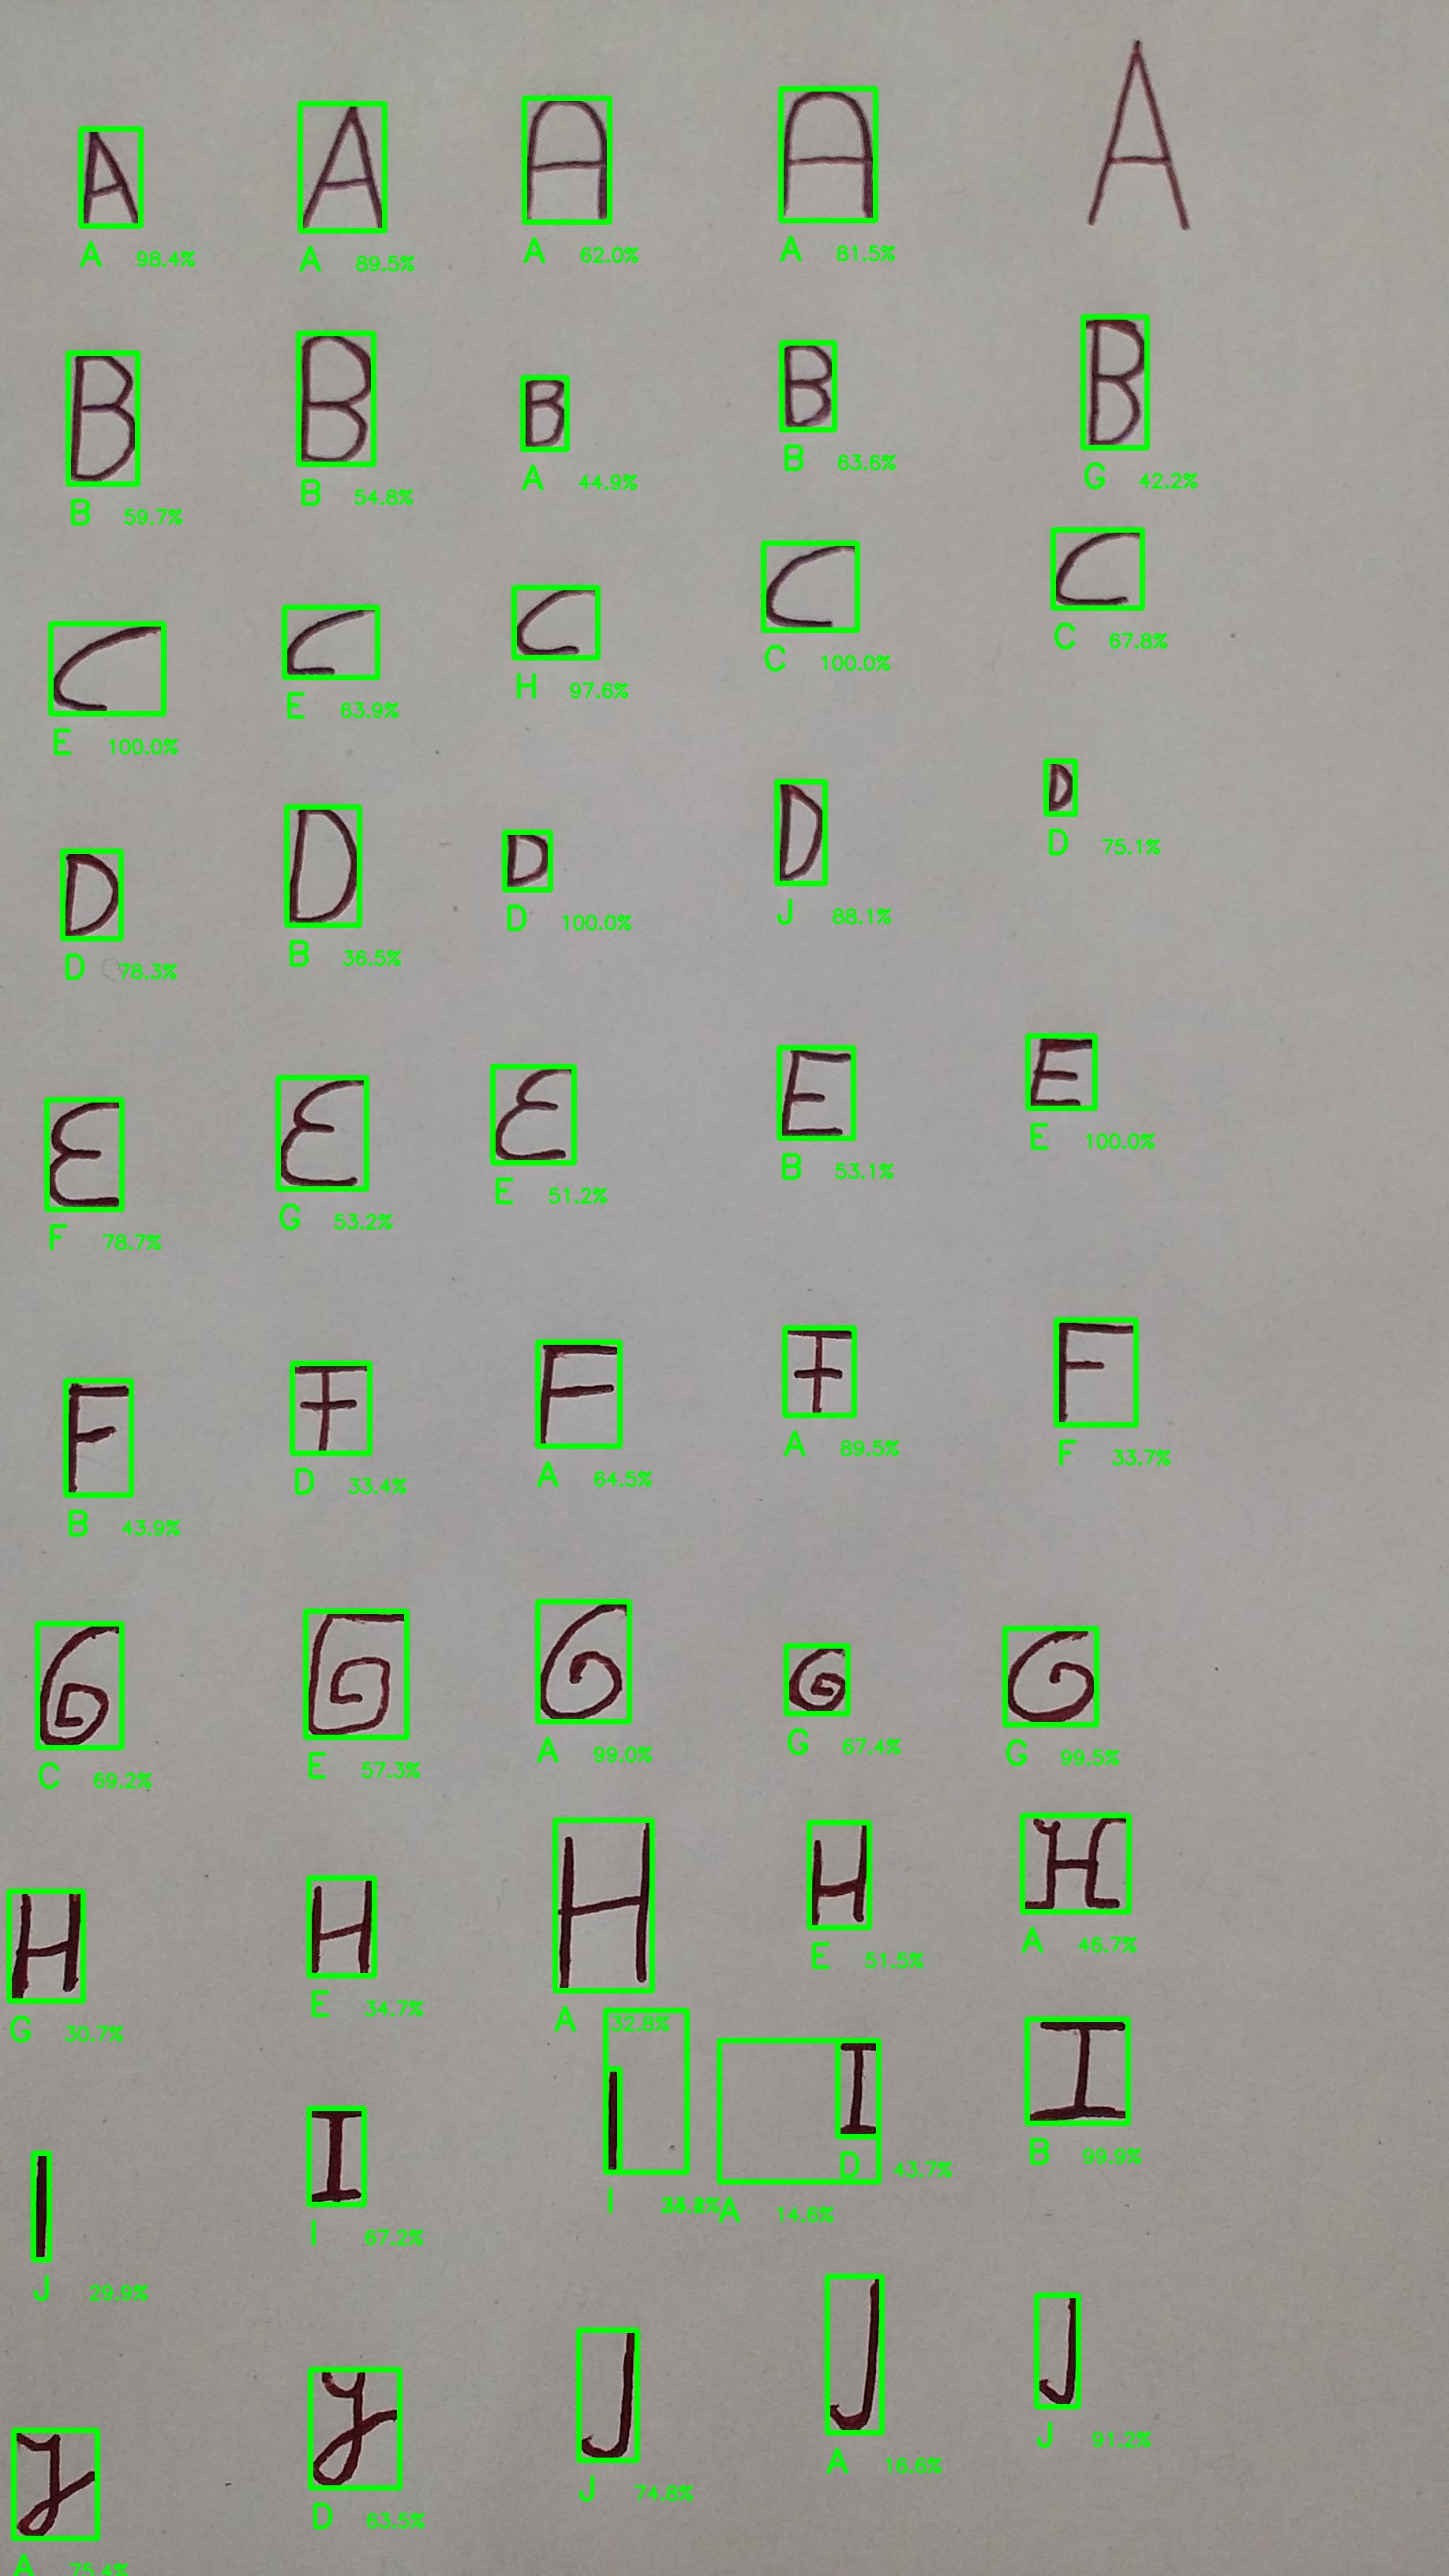 A A A A A
A 98.4% A 89.5% A 62.0% A 81.5%
B B B B B
B 59.7% B 54.8% A 44.9% B 63.6% G 42.2%
C C C C C
E 100.0% E 63.9% H 97.6% C 100.0% C 67.8%
D D D D D
D 78.3% B 36.5% D 100.0% J 88.1% D 75.1%
E E E E E
F 78.7% G 53.2% E 51.2% B 53.1% E 100.0%
F F F F F
B 43.9% D 33.4% A 64.5% A 89.5% F 33.7%
G G G G G
C 69.2% E 57.3% A 99.0% G 67.4% G 99.5%
H H H H H
G 30.7% E 34.7% A 32.8% E 51.5% A 46.7%
I I I I I
J 29.9% I 67.2% I A 14.6% D 43.7% B 99.9%
J J J J J
A 75.4% D 63.5% J 74.8% A 16.6% J 91.2%